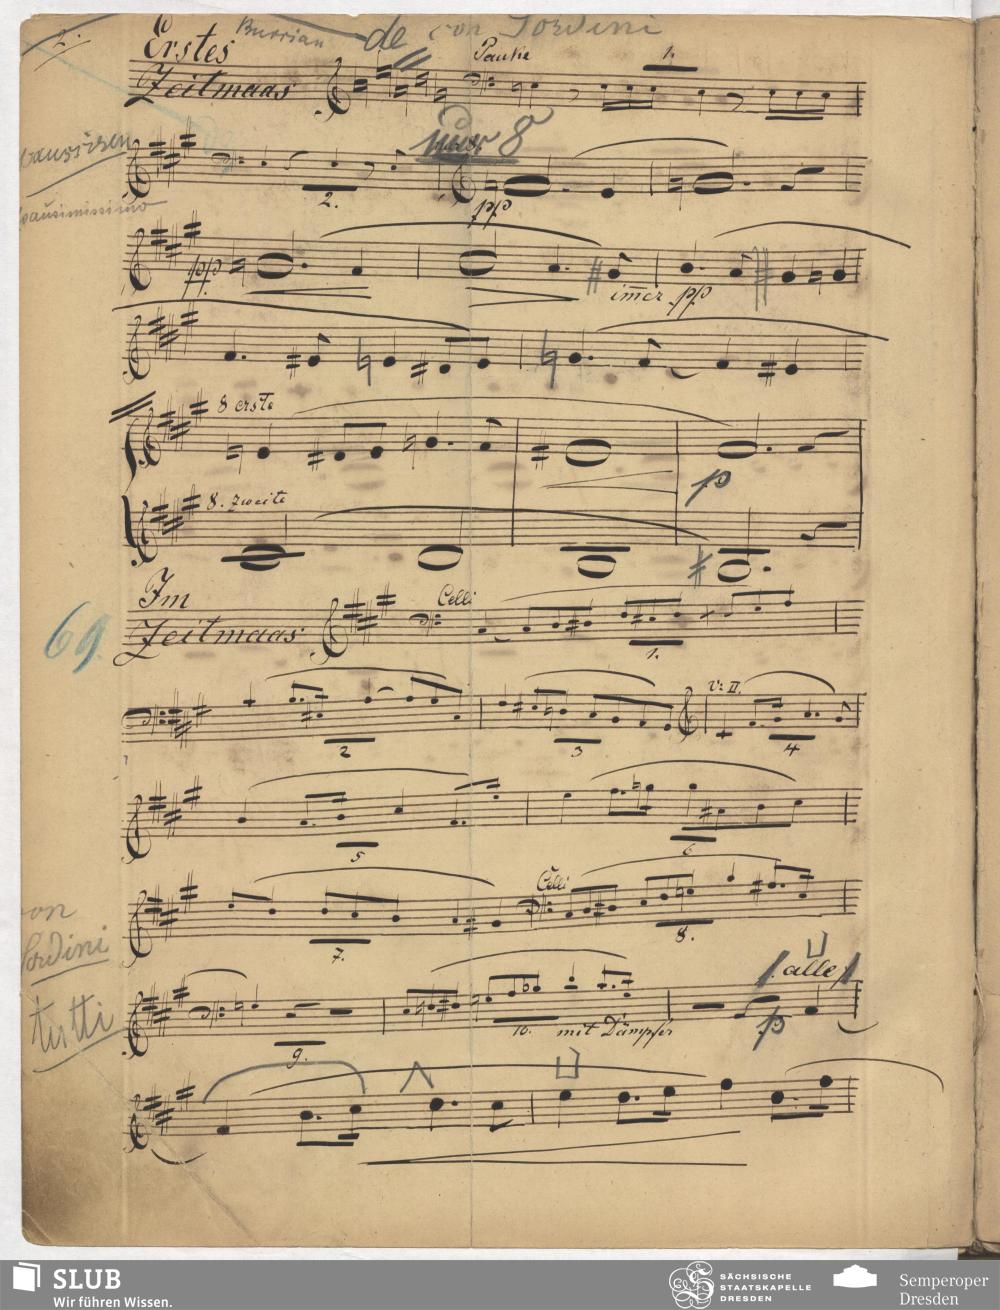 2.
Burrian de con Sordini
Erstes
Zeitmaas
Pauke
1.
nur 8
2.
pp
pp
im̄er pp
8 erste
p
8. zweite
69.
Im
Zeitmaas
Celli
1.
V: II.
2
3
4
5
6
Celli
7.
8.
Sordini
tutti
alle
9.
10. mit Dämpfer
p
SLUB
Wir führen Wissen.
SÄCHSISCHE
STAATSKAPELLE
DRESDEN
Semperoper
Dresden